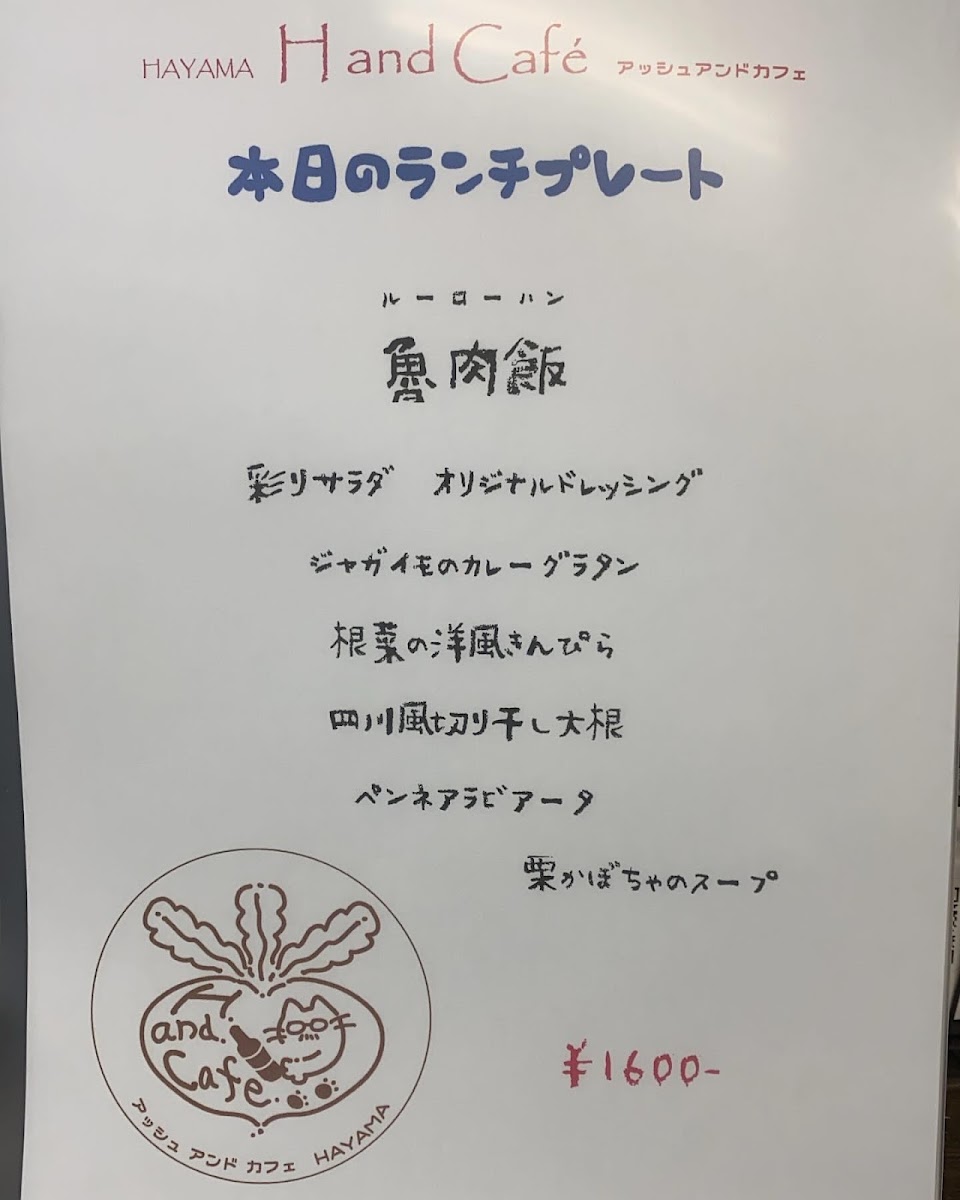 HAYAMA H and Café アッシュアンドカフェ
本日のランチプレート
ルーローハン
魯肉飯
彩りサラダ オリジナルドレッシング
ジャガイモのカレーグラタン
根菜の洋風きんぴら
四川風切り干し大根
ペンネアラビアータ
栗かぼちゃのスープ
H
and.
Cafe.
アッシュ アンド カフェ HAYAMA
¥1600-